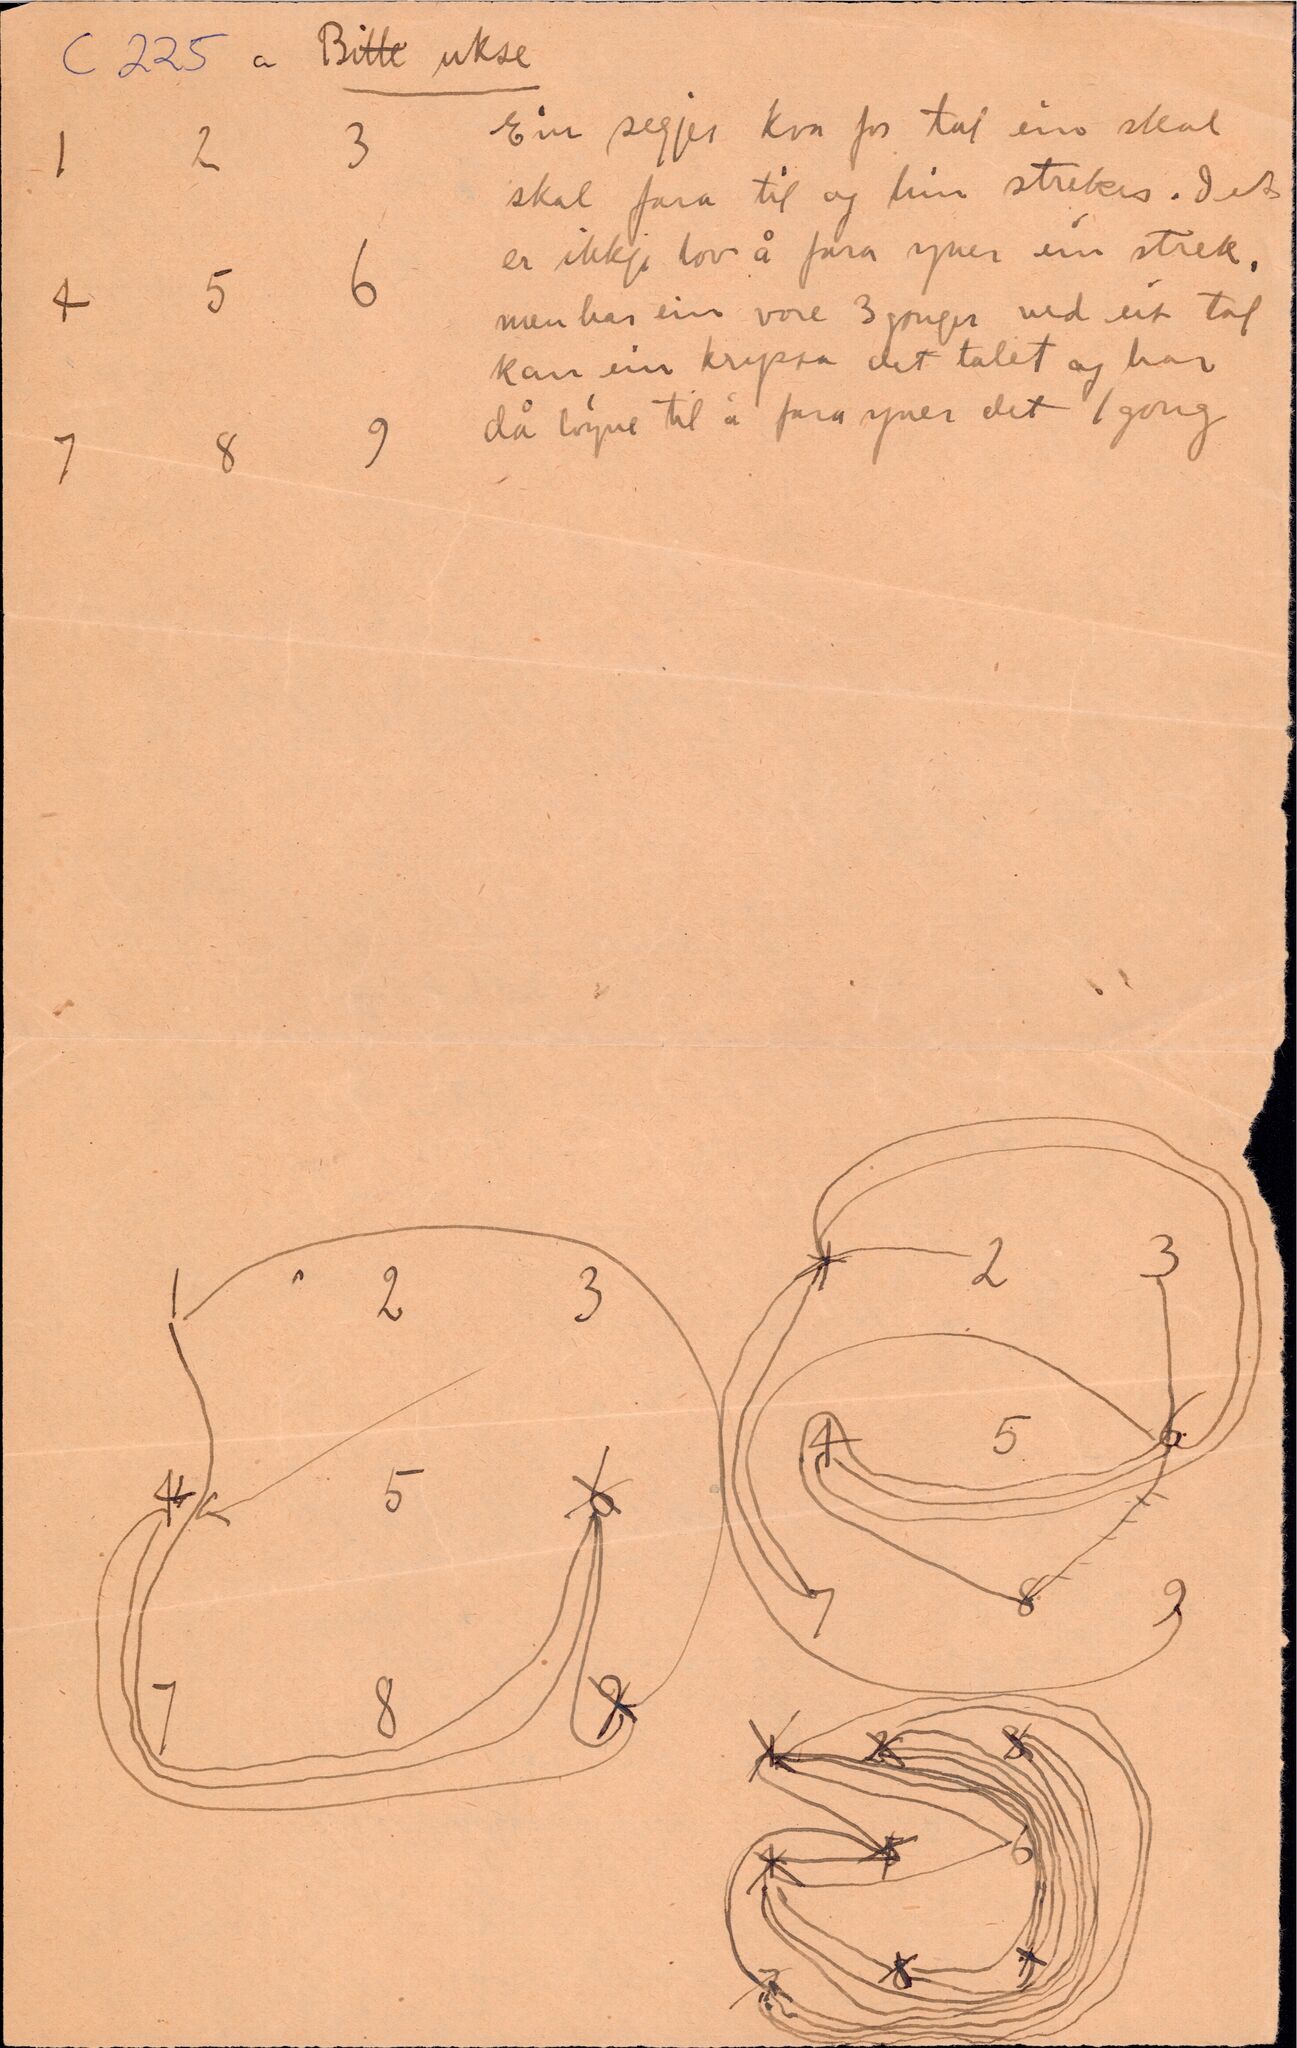 C 225 a Bitte ukse
1 2 3
4 5 6
7 8 9
Ein segjer kva for tal ein skal
skal fara til og hin strekar. Det
er ikkje lov å fara yver ein strek,
men har ein vore 3 gonger ved eit tal
kan ein kryssa det talet og har
då løyve til å fara yver det 1 gong
1 2 3
4 5 6
7 8 9
1 2 3
4 5 6
7 8 9
1 2 3
4 5 6
7 8